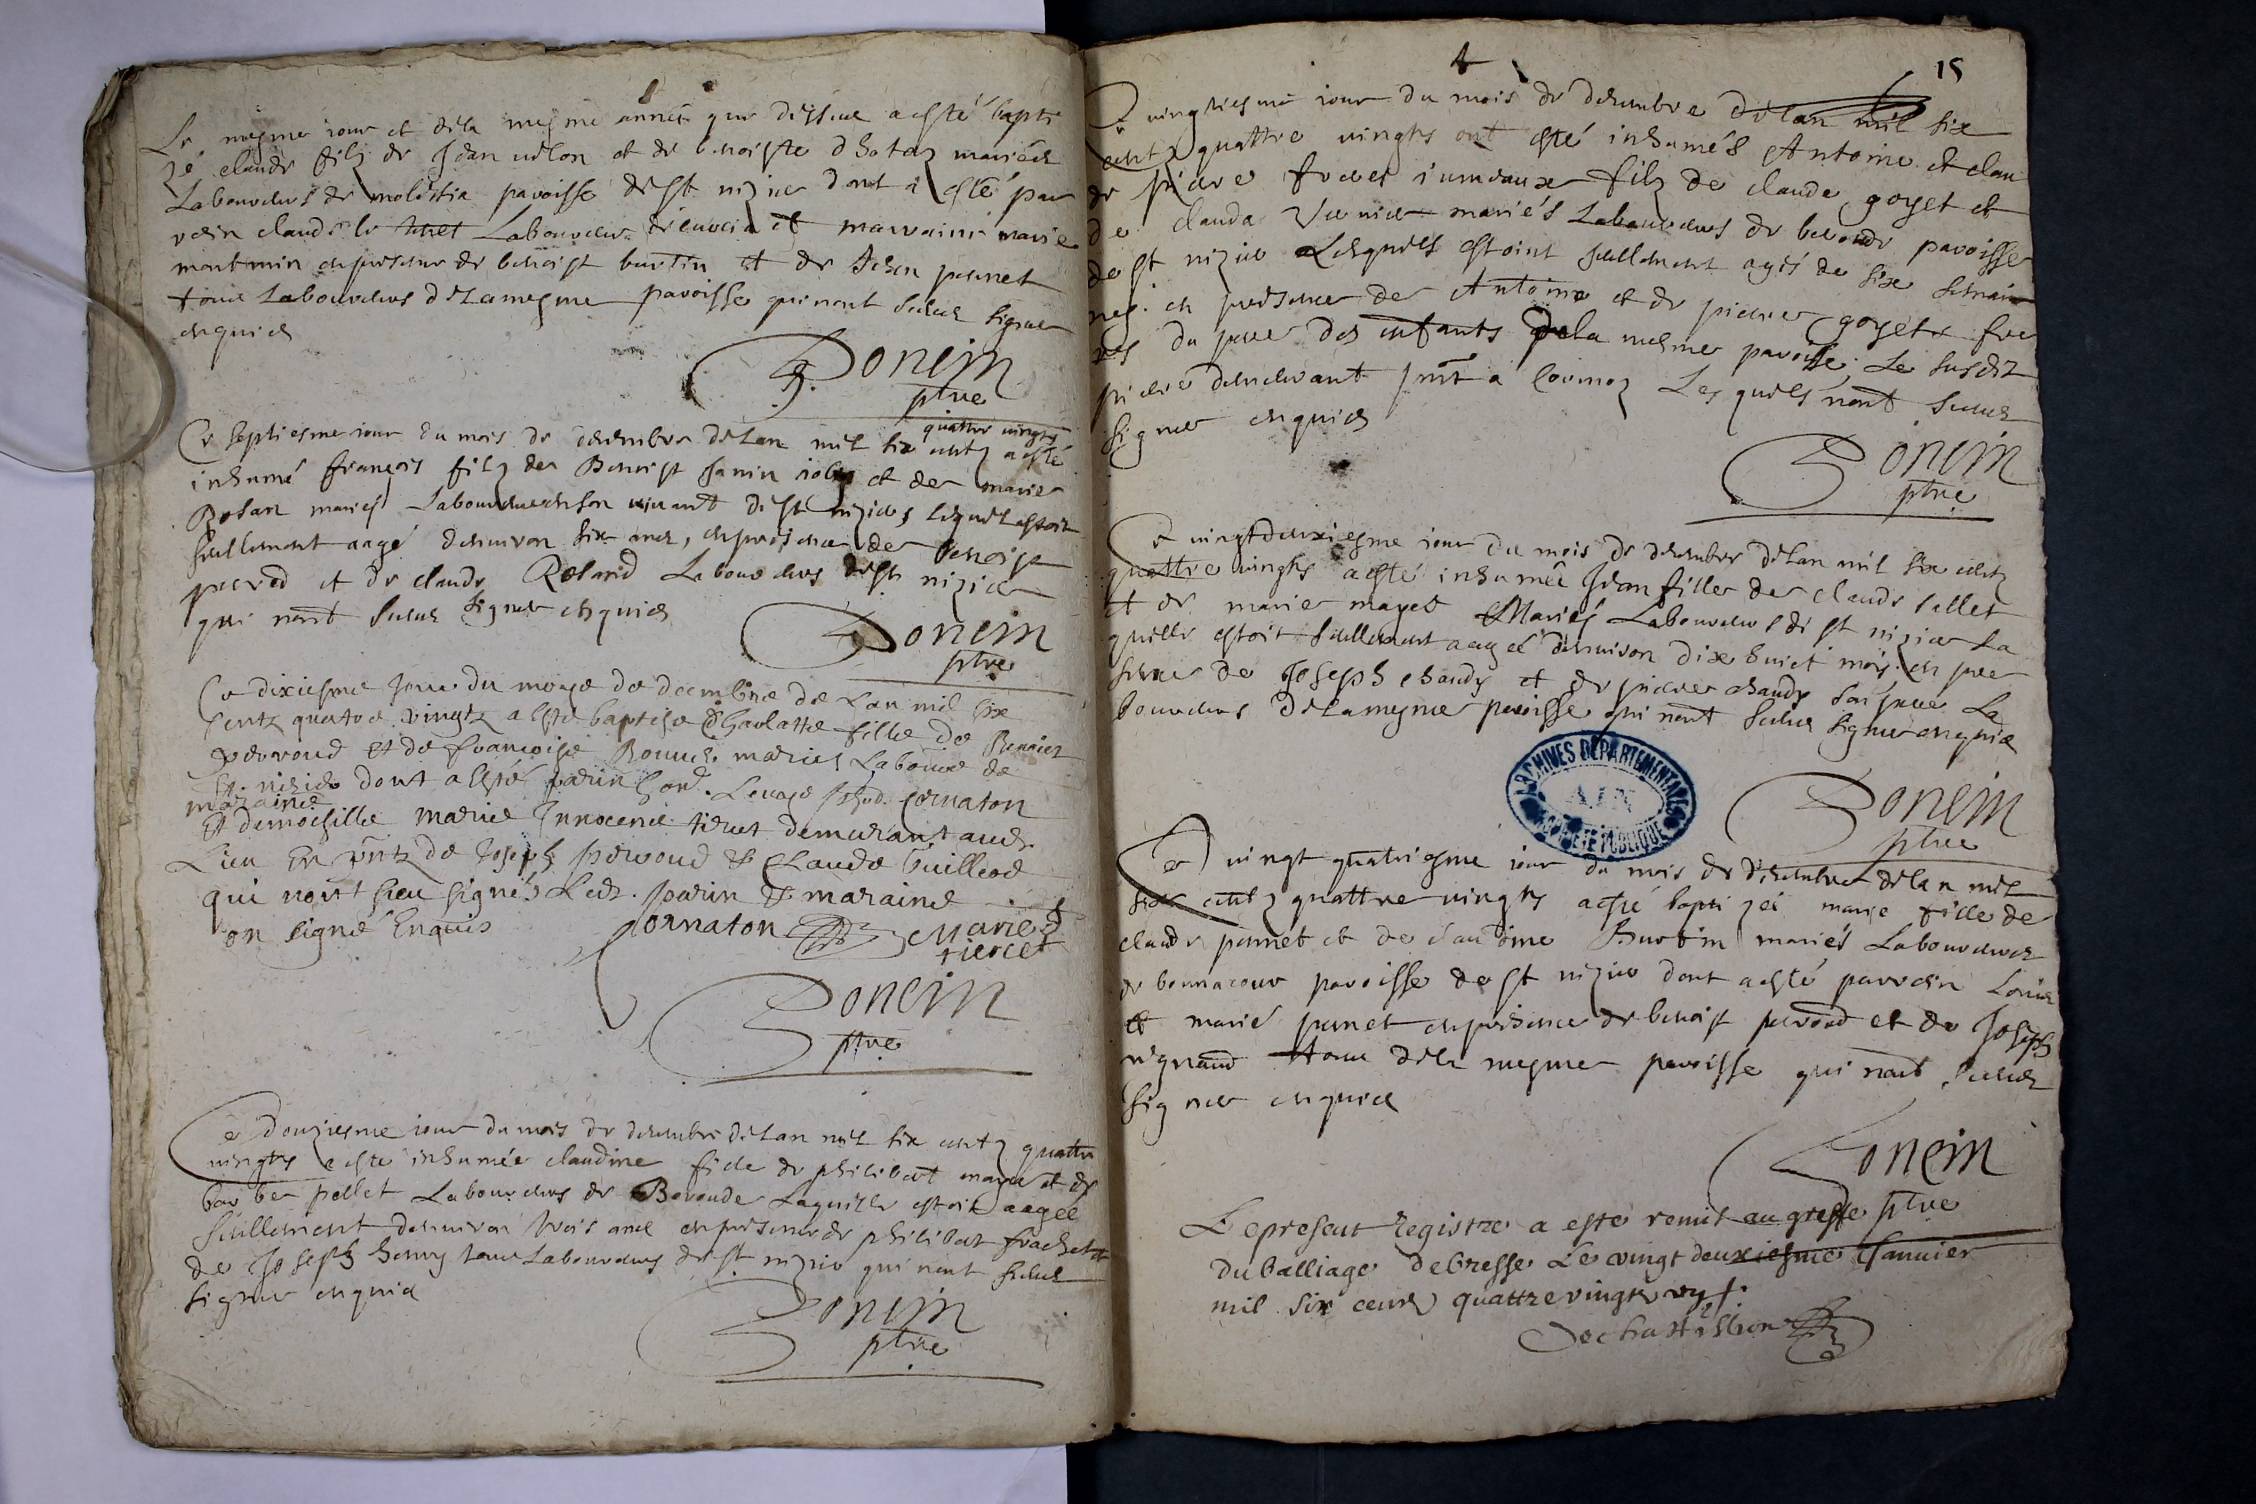 Le mesme iour et dela mesme année que dessus a esté bapti
zé claude filz de Jean vilon et de benoiste mariés
Laboureurs de parroisse de St nizier dont a esté par
rein claude Laboureur et marraine marie
montmin en presence de benoist burtin et de perret
tous Laboureurs de la mesme parroisse qui nont sceus signer
enquis
Bonein
ptre
Ce septiesme iour du mois de decembre de lan mil six centz quattre vingts a esté
inhumé françois filz de Benoist Janin et de marie
Rolan mariés Laboureurs vivant de St nizier lequel estoit
seullement aagé denviron six ans, en presence de benoist
perrod et de claude Roland Laboureurs de St nizier
qui nont sceus signer enquis
Bonein
ptre
Ce dixiesme Jour du moys de decembre de Lan mil six
centz quatre vingtz a esté baptise Charlotte fille de Benoict
perroud et de françoise Bonnet mariés Laboure de
St nizier dont a esté parin hon. Cornaton
maraine
Et demoiselle marie Innocente tiercet demeurant aud.
Lieu En pntz de Joseph perroud & Claude Guillod
qui nont sceu signés Led. parin & maraine
on signé Enquis Cornaton Marie
tiercet
Bonein
ptre
Ce douziesme iour du mois de decembre de Lan mil six centz quattre
vingts a esté inhumée claudine fille de philibert mayet et de
bar be pollet Laboureurs de Beronde Laquelle estoit aagée
seullement denviron trois ans en presence de philibert frachet et
de Joseph henry tous Laboureurs de St nizier qui nont sceus
signer enquis
Bonein
ptre
15
Ce vingtiesme iour du mois de decembre de lan mil six
centz quattre vingts ont esté inhumés Antoine et clau
de pierre freres iumeaux filz de claude goyet et
de clauda Vernier mariés Laboureurs de beronde parroisse
de st nizier Lesquels estoint seullement agés de six semai
nes. en presence de Antoine et de pierre goyet fre
res du pere des enfants de la mesme parroisse Le susdit
pierre demeurant pnt a Cormoz Lesquels nont sceus
signer enquis
Bonein
ptre
Ce vingtdeuxiesme iour du mois de decembre de lan mil six centz
quattre vingts a esté inhumée Jean fille de claude sallet
et de marie mayet Mariés Laboureurs de st nizier La
quelle estoit seullement aagée denviron dix huict mois en pre
sence de Joseph chandy et de pierre chandy son frere La
boureurs de la mesme parroisse qui nont sceus signer enquis
ARCHIVES DEPARTEMENTALES
AIN
PROPRIETE PUBLIQUE
Bonein
ptre
Ce vingt quatriesme iour du mois de decembre de lan mil
six centz quattre vingts a esté bapti zéé marie fille de
claude perret et de clauдine Burtin mariés Laboureurs
de bonnacour parroisse de st nizier dont a esté parrein Louis
et marie perret en presence de benoist perrod et de Joseph
vignand tous de la mesme parroisse qui nont sceus
signer enquis
Bonein
ptre
Le present Registre a este remit au greffe
du balliage de bresse Le vingt deuxiesme Janvier
mil six cens quattre vingts
Dechastillion